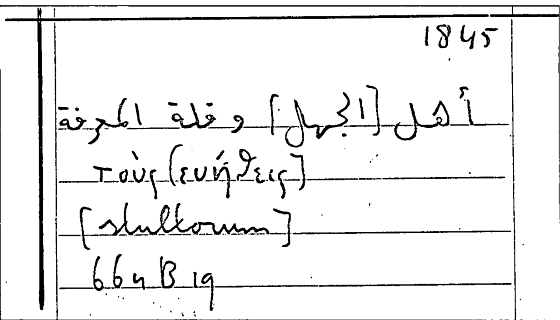 1845
أهل [الجهل] و قلة المعرفة
τοὺς [ευήθεις]
[stultorum]
664 B 19